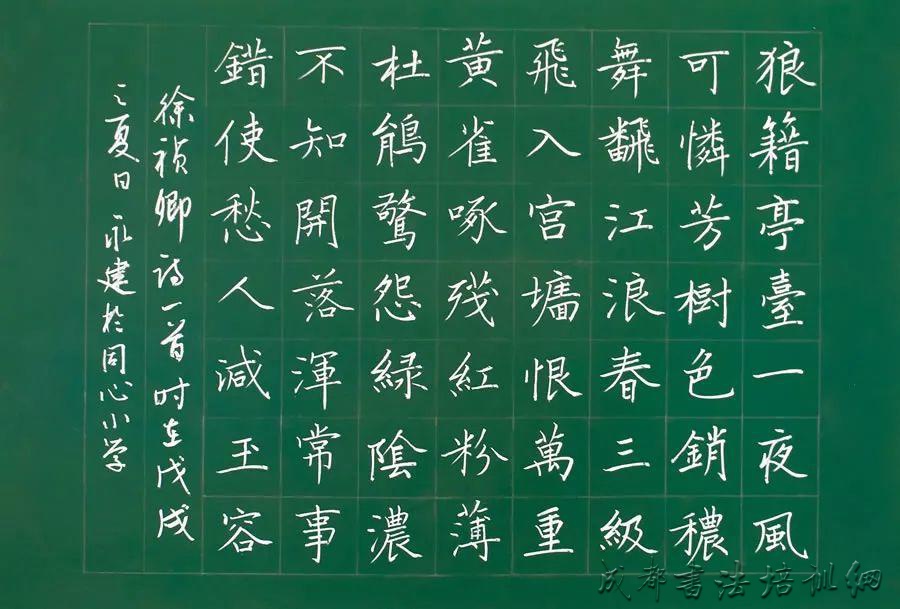 狼籍亭臺一夜風
可憐芳樹色銷穠
舞飜江浪春三級
飛入宮墻恨萬重
黃雀啄殘紅粉薄
杜鵑驚怨綠陰濃
不知開落渾常事
錯使愁人減玉容
徐禎卿詩一首时在戊戌
之夏日永建於同心小学
成都書法培训网